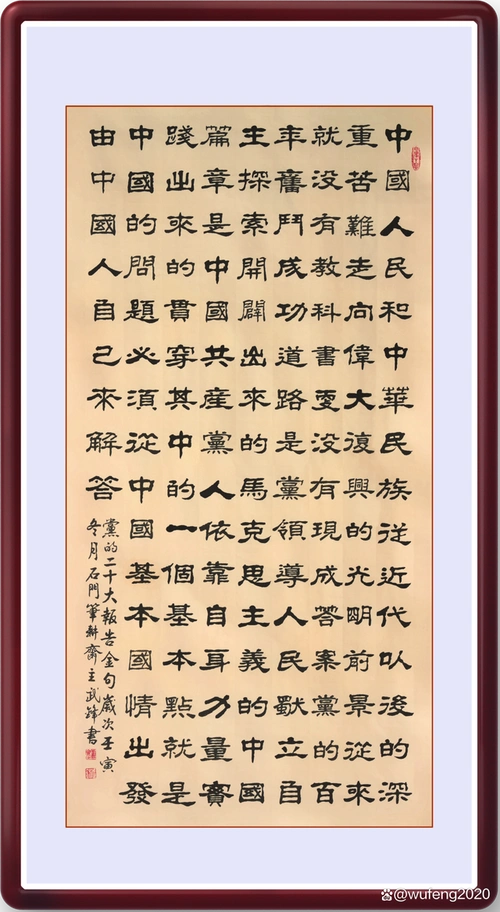 中國人民和中華民族從近代以後的深
重苦難走向偉大復興的光明前景從來
就沒有教科書更沒有現成答案黨的百
年奮鬥成功道路是黨領導人民獨立自
主探索開闢出來的馬克思主義的中國
篇章是中國共産黨人依靠自身力量實
踐出來的貫穿其中的一個基本點就是
中國的問題必須從中國基本國情出發
由中國人自己來解答
黨的二十大報告金句歲次壬寅
冬月石門筆耕齋主武鋒書
@wufeng2020